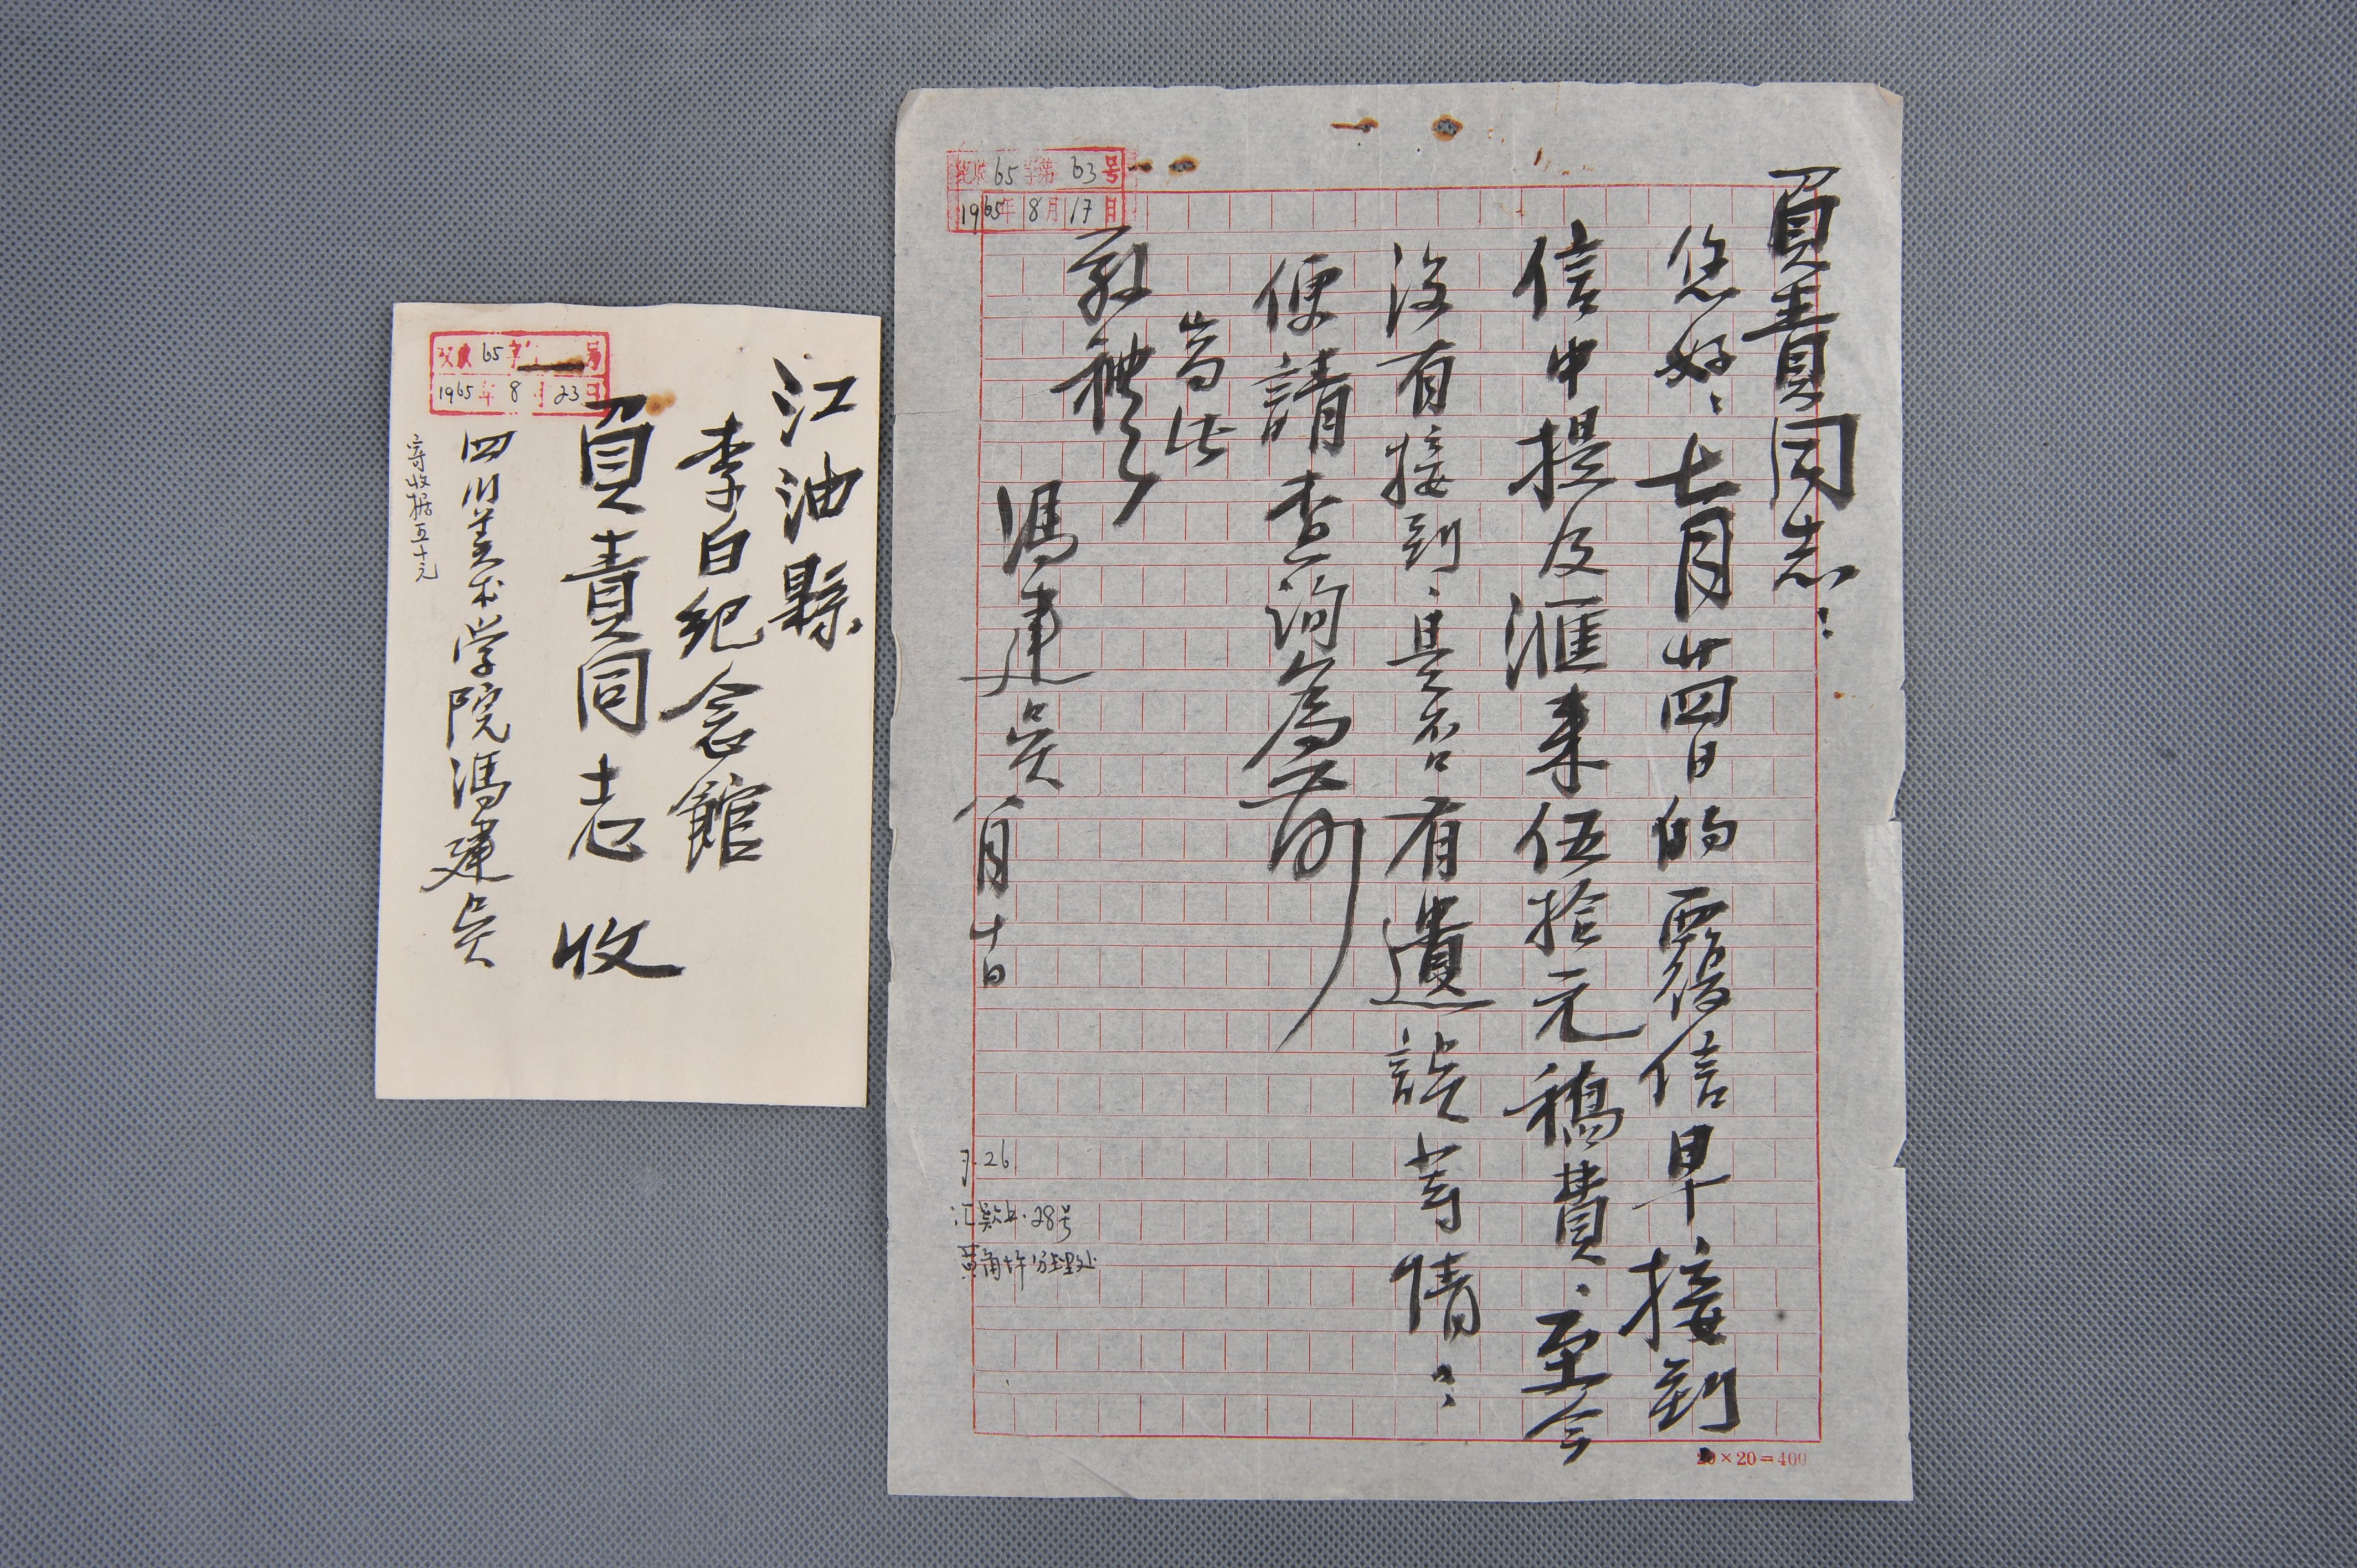 江油縣
李白纪念館
負責同志 收
四川美术学院馮建吴
寄收据五十元
65 号
1965年8月23日
負責同志：
您好：七月廿四日的覆信早接到.
信中提及滙来伍拾元稿費、至今
没有接到、是否有遺誤等情：
便請查詢為荷
耑此
敬礼
馮建吴 八月十日
65 字第 63号
1965年8月17日
7.26
汇款 28号
黄角坪分理处
20×20=400